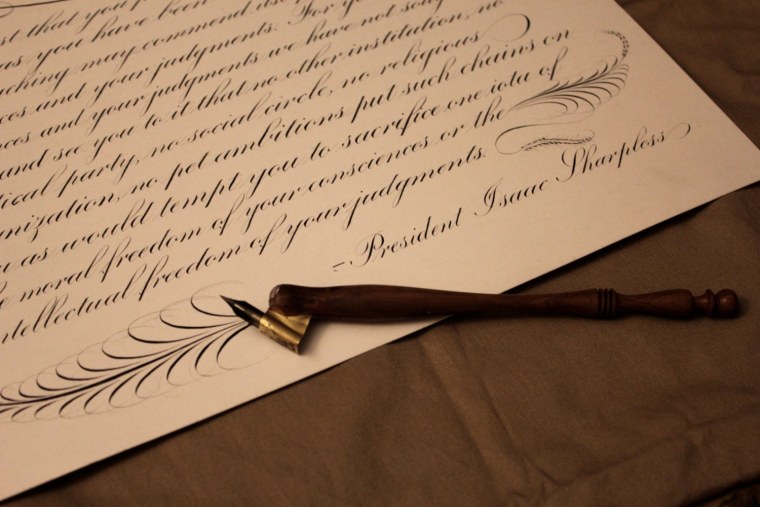 st that you
as you have been
ching may commend its
ces and your judgments. For
ces and your judgments we have not soug
and see you to it that no other institution, no
tical party, no social circle, no religious
nization, no pet ambitions put such chains on
u as would tempt you to sacrifice one iota of
e moral freedom of your consciences or the
ntellectual freedom of your judgments.
- President Isaac Sharpless